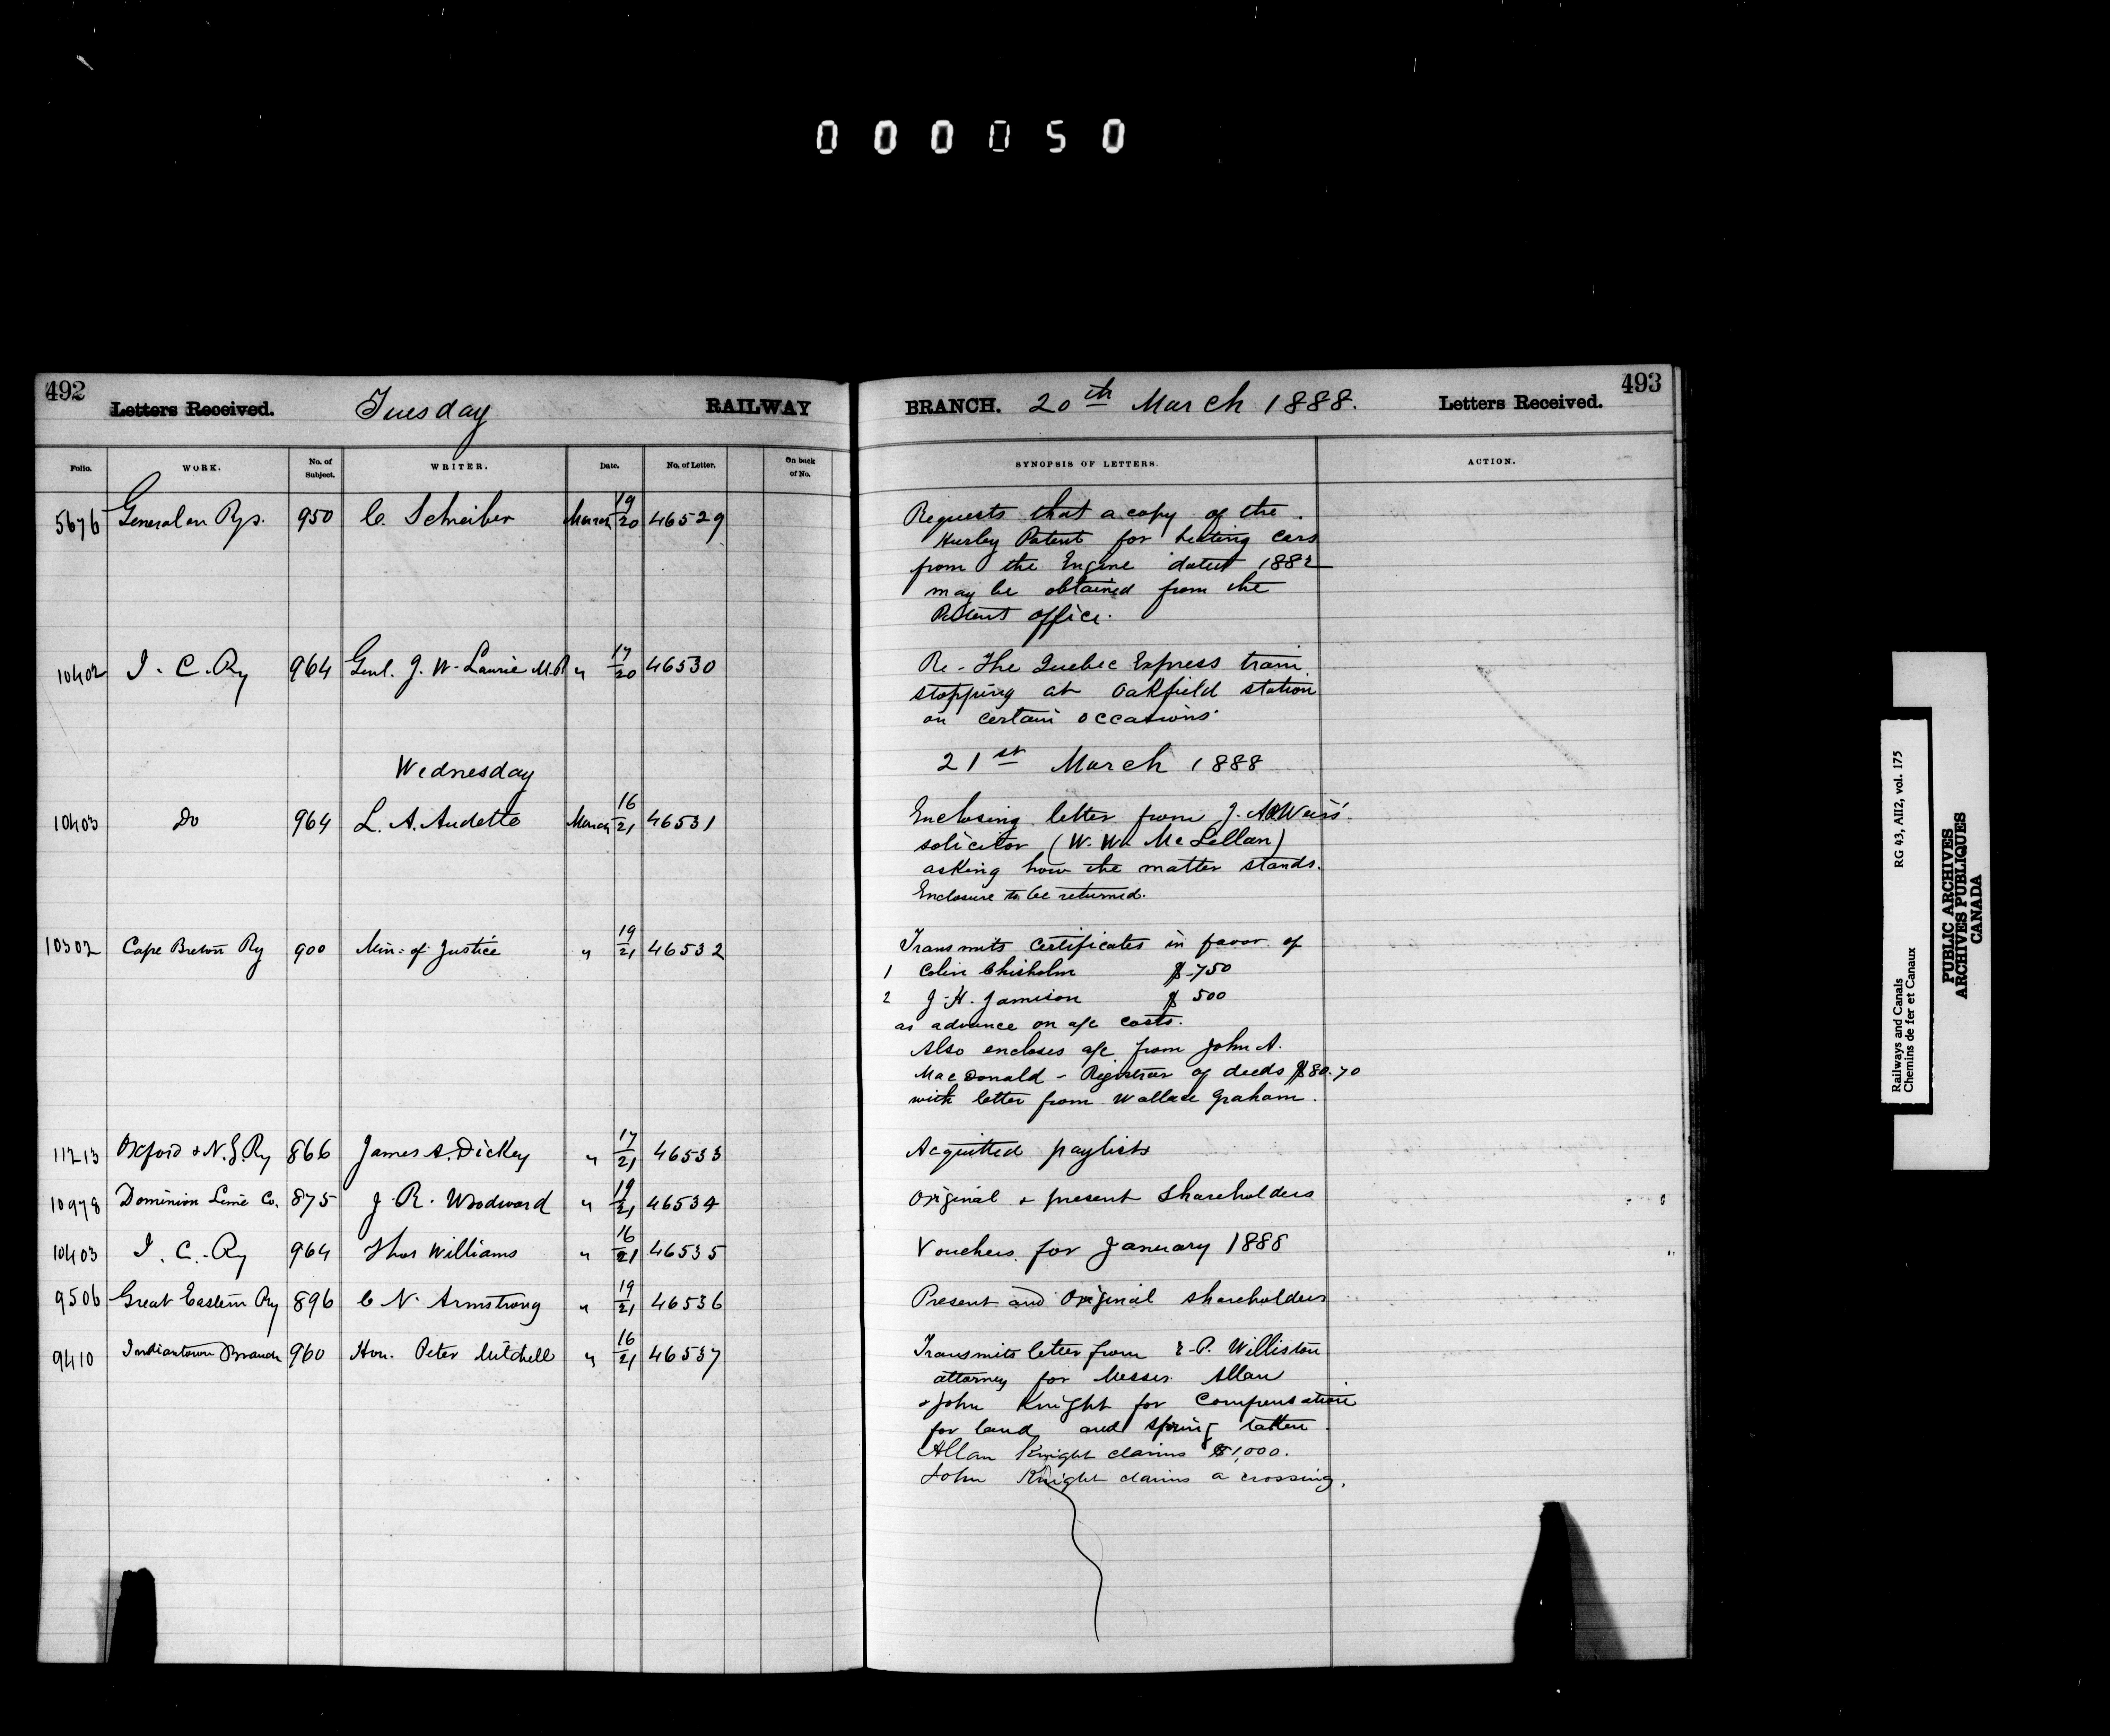 000050
492 Letters Received. Tuesday RAILWAY
BRANCH. 20th March 1888. Letters Received. 493
Folio. WORK. No. of Subject. WRITER. Date. No. of Letter. On back of No.
SYNOPSIS OF LETTERS. ACTION.
5676 General on Rys. 950 C. Schreiber March 19/20 46529
Requests that a copy of the
Patent for heating cars
from the Engine dated 1882
may be obtained from the
Patent office.
10402 I. C. Ry 964 Genl. J. W. Laurie M.P. " 17/20 46530
Re. The Quebec Express train
stopping at Oakfield station
on certain occasions
Wednesday
21st March 1888
10403 Do 964 L. A. Audette March 16/21 46531
Enclosing letter from J.
solicitor (W. McLellan)
asking how the matter stands.
Enclosure to be returned.
10302 Cape Breton Ry 900 Min. of Justice " 19/21 46532
Transmits certificates in favor of
1 Colin Chisholm $750
2 J. H. Jamison $500
as advance on a/c costs.
Also encloses a/c from John A.
MacDonald - Registrar of deeds $80.70
with letter from Wallace Graham.
11213 Oxford & N.G. Ry 866 James A. Dickey " 17/21 46533
Acquitted paylists
10978 Dominion Lime Co. 875 J. R. Woodward " 19/21 46534
Original & present shareholders
10403 I. C. Ry 964 Thos Williams " 16/21 46535
Vouchers for January 1888
9506 Great Eastern Ry 896 C N. Armstrong " 19/21 46536
Present and Original shareholders
9410 Indiantown Branch 960 Hon. Peter Mitchell " 16/21 46537
Transmits letter from E. P. Williston
attorney for Messrs. Allan
& John Knight for compensation
for land and spring taken
Allan Knight claims $1,000.
John Knight claims a crossing.
Railways and Canals RG 43, AII2, vol. 175
Chemins de fer et Canaux
PUBLIC ARCHIVES
ARCHIVES PUBLIQUES
CANADA